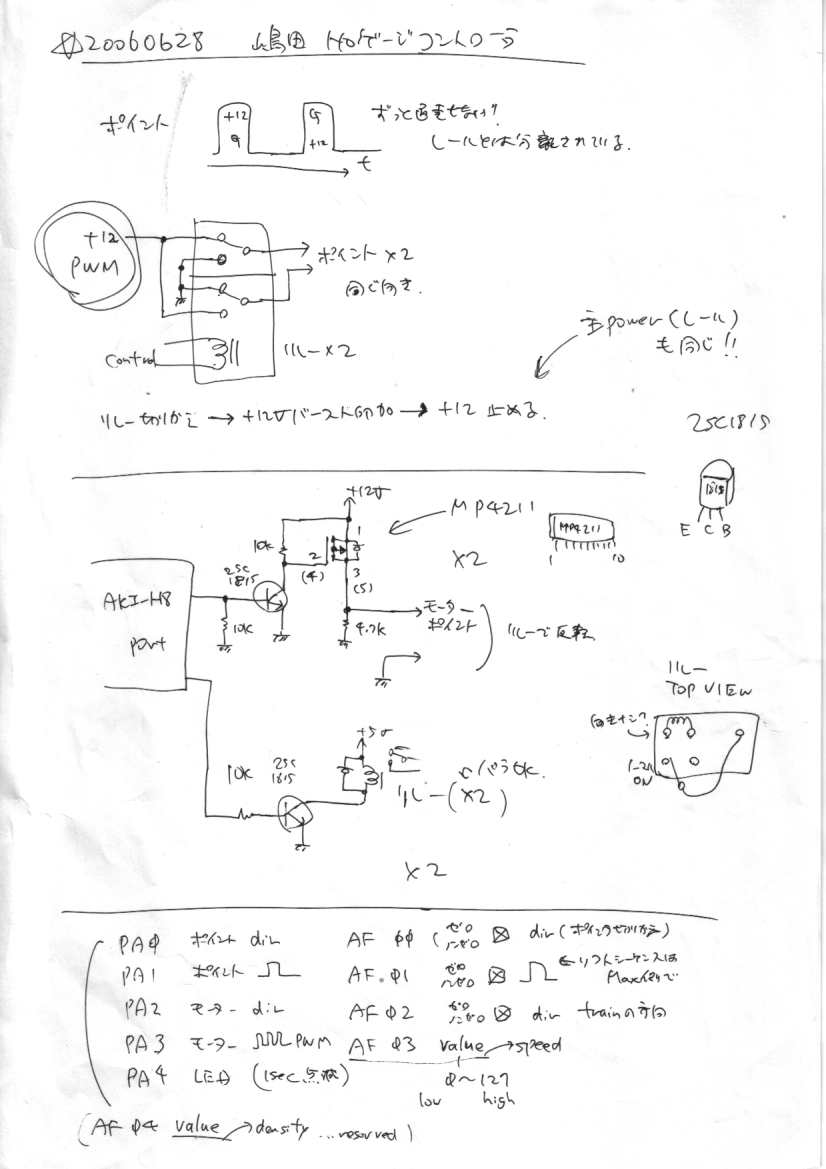 20060628 嶋田 HOゲージコントローラ
ポイント
+12
G
G
+12
t
レールとは分離されている.
+12
PWM
ポイント×2
同じ向き.
Control
リレー×2
主power(レール)
も同じ!!
リレー切りかえ → +12Vバースト印加 → +12 止める.
2SC1815
1815
E C B
+12V
MP4211
×2
MP4211
1 10
10k
1
2
(4)
3
(5)
2SC
1815
AKI-H8
port
10K
4.7k
モーター
ポイント
リレーで反転
リレー
TOP VIEW
+5V
10K
2SC
1815
リレー(×2)
ON
×2
PAφ ポイント dir AF φφ (ゼロ ノンゼロ dir (ポイント切りかえ)
PA1 ポイント AF.φ1 ゼロ ノンゼロ ←ソフトシーケンスは
Maxのみで
PA2 モーター dir AF φ2 ゼロ ノンゼロ dir trainの方向
PA3 モーター PWM AF φ3 value →speed
PA4 LED (1sec点滅) φ〜127
low high
(AF φ4 value →density ...reserved)